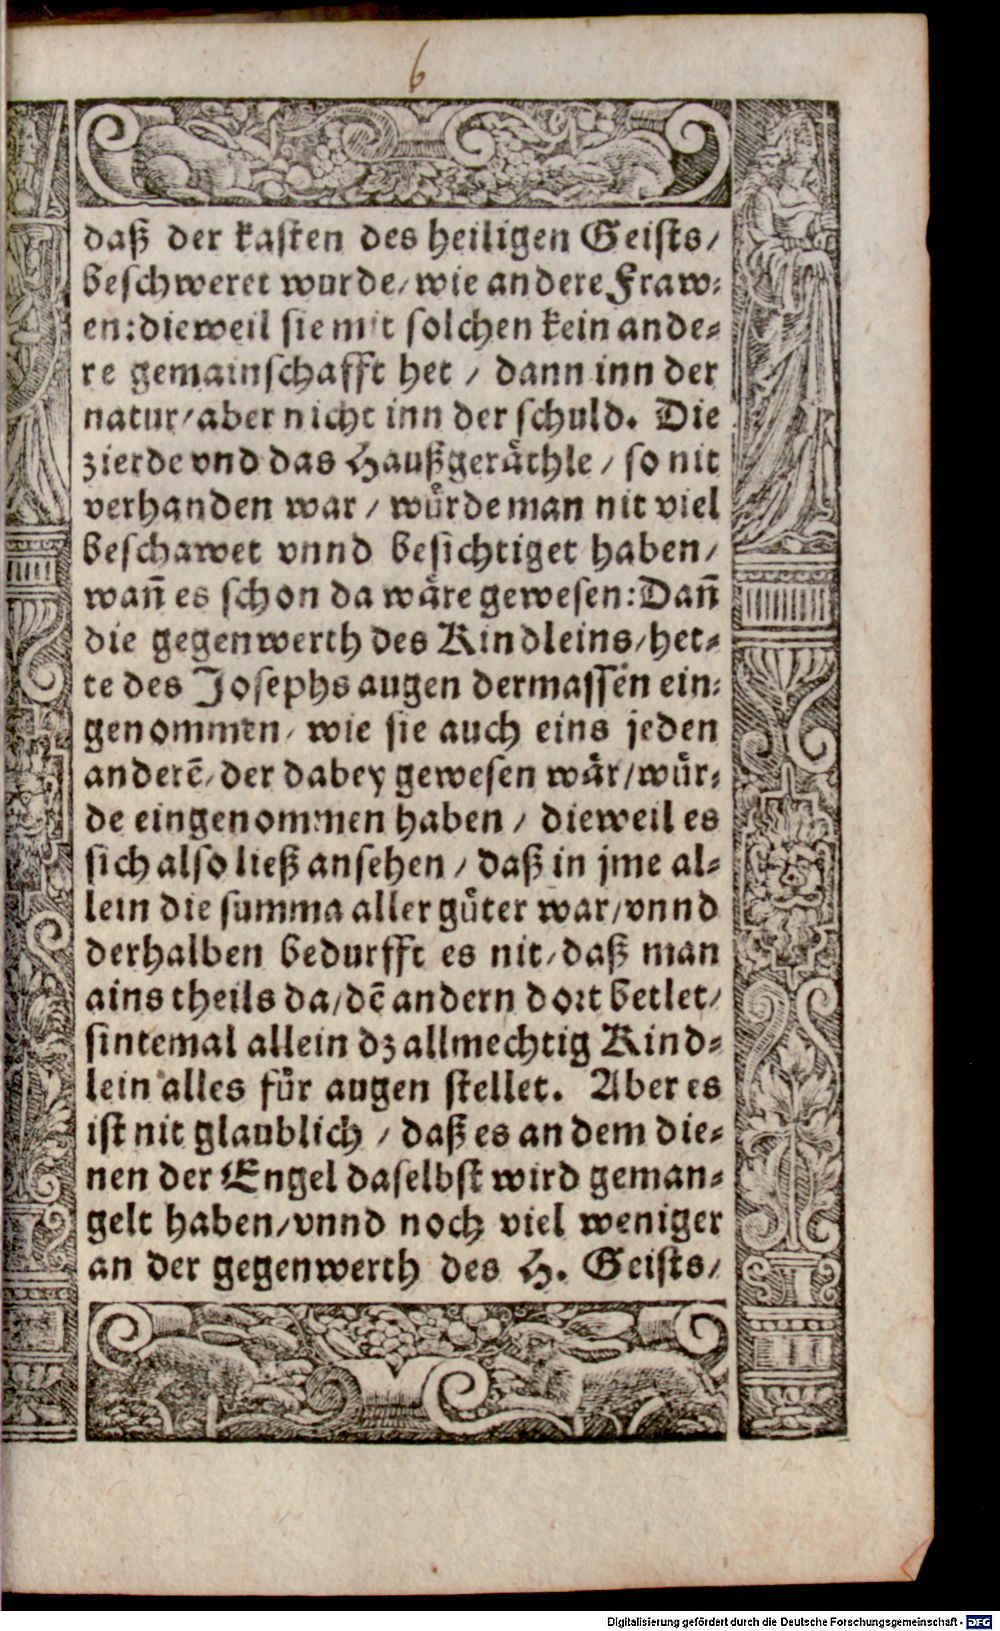 6
daß der kasten des heiligen Geists/
beschweret wurde/ wie andere Fraw⸗
en: dieweil sie mit solchen kein ande⸗
re gemainschafft het / dann inn der
natur/ aber nicht inn der schuld. Die
zierde vnd das Haußgeräthle / so nit
verhanden war / würde man nit viel
beschawet vnnd besichtiget haben/
wañ es schon da wäre gewesen: Dañ
die gegenwerth des Kindleins/ het⸗
te des Josephs augen dermassen ein⸗
genommen/ wie sie auch eins jeden
anderē/ der dabey gewesen wär/ wür⸗
de eingenommen haben / dieweil es
sich also ließ ansehen / daß in jme al⸗
lein die summa aller güter war/ vnnd
derhalben bedurfft es nit/ daß man
ains theils da/ dē andern dort betlet/
sintemal allein dz allmechtig Kind⸗
lein alles für augen stellet. Aber es
ist nit glaublich / daß es an dem die⸗
nen der Engel daselbst wird geman⸗
gelt haben/ vnnd noch viel weniger
an der gegenwerth des H. Geists/
Digitalisierung gefördert durch die Deutsche Forschungsgemeinschaft - DFG